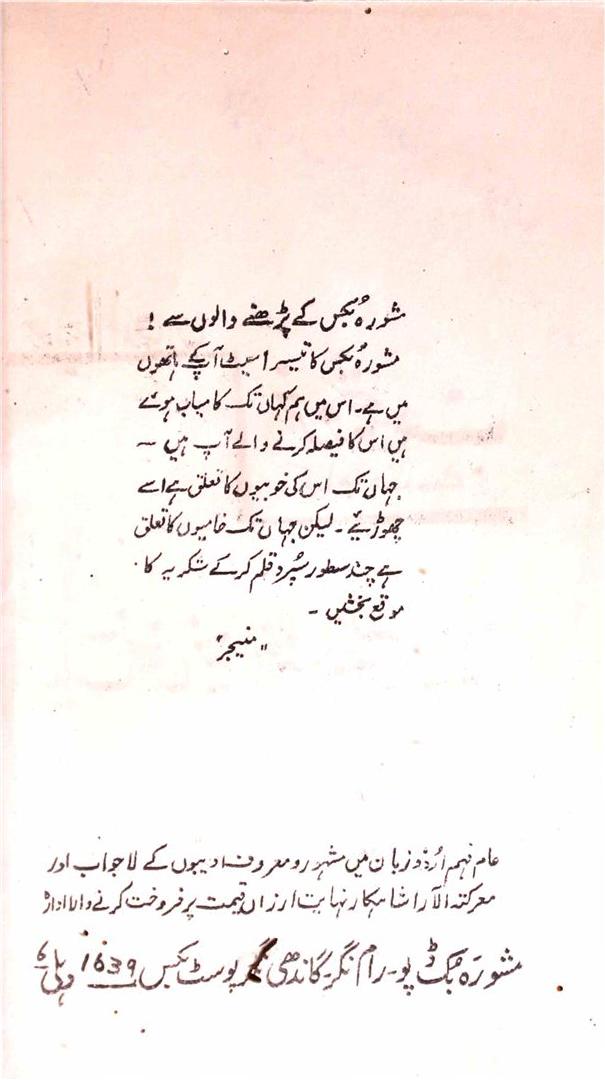 مشورہ بکس کے پڑھنے والوں سے !
مشورہ بکس کا تیسرا سیٹ آپ کے ہاتھوں
میں ہے۔ اس میں ہم کہاں تک کامیاب ہوئے
ہیں اس کا فیصلہ کرنے والے آپ ہیں ۔
جہاں تک اس کی خوبیوں کا تعلق ہے اسے
چھوڑیئے ۔ لیکن جہاں تک خامیوں کا تعلق
ہے چند سطور سپردِ قلم کر کے شکریہ کا
موقع بخشیں ۔
"منیجر"
عام فہم اُردو زبان میں مشہور و معروف ادیبوں کے لاجواب اور
معرکتہ الآرا شاہکار نہایت ارزاں قیمت پر فروخت کرنے والا ادارہ
مشورہ بک ڈپو۔ رام نگر۔ گاندھی نگر پوسٹ بکس 1639 دہلی 6